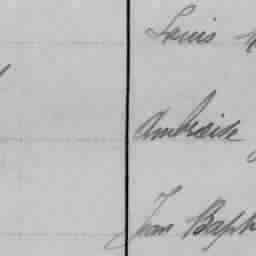 Louis
Ambroise
Jean Bapt